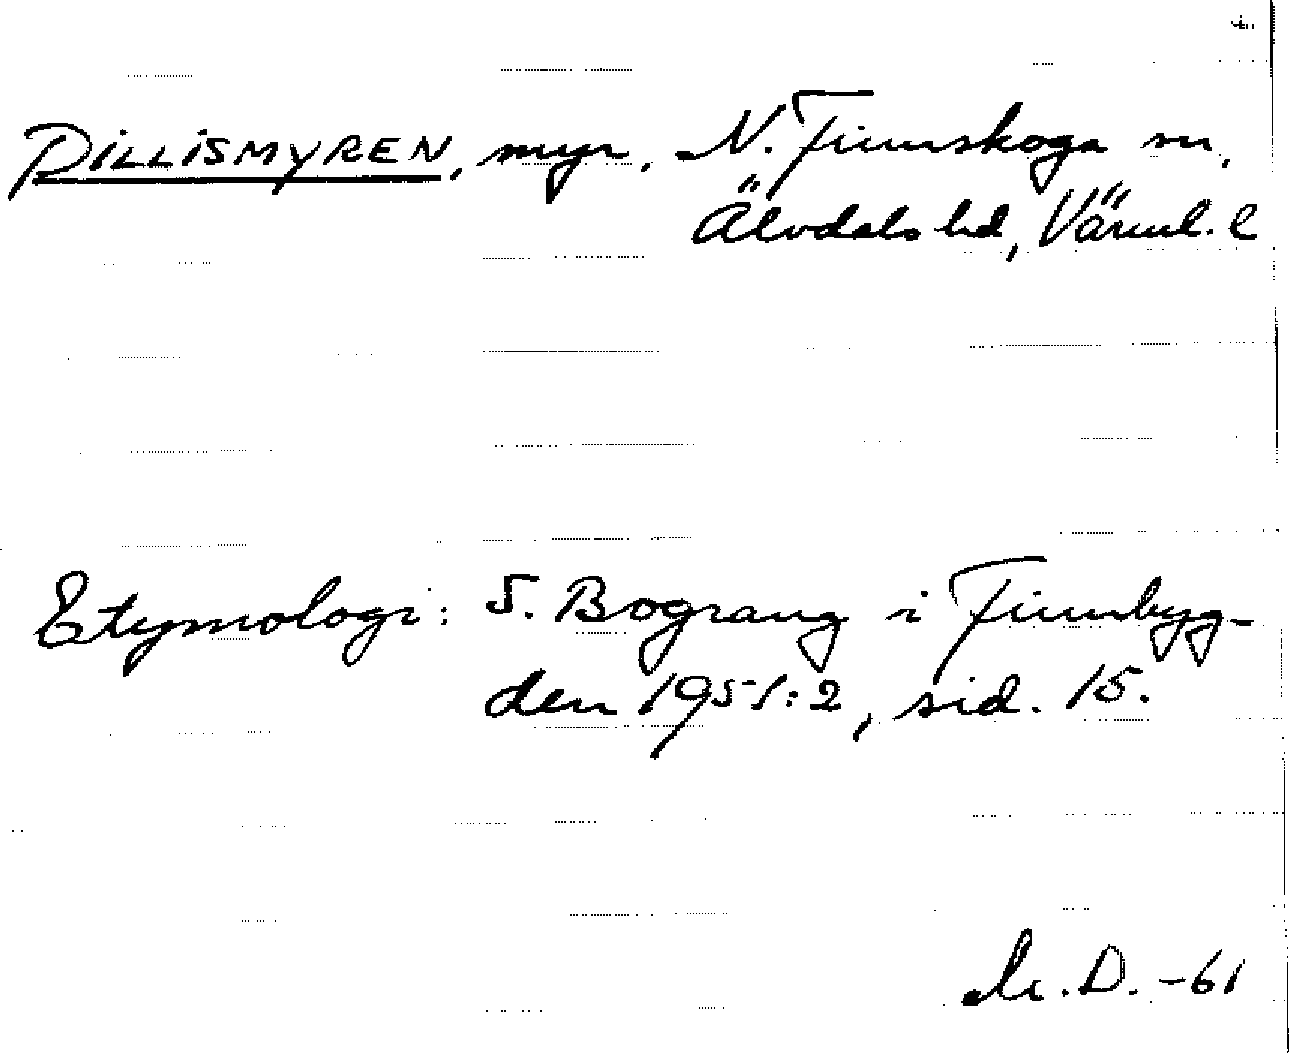 PILLISMYREN, myr, N. Finnskoga sn,
Älvdals hd, Värml. l
Etymologi: S. Bograng i Finnbyg-
den 1951:2, sid. 15.
D. -61